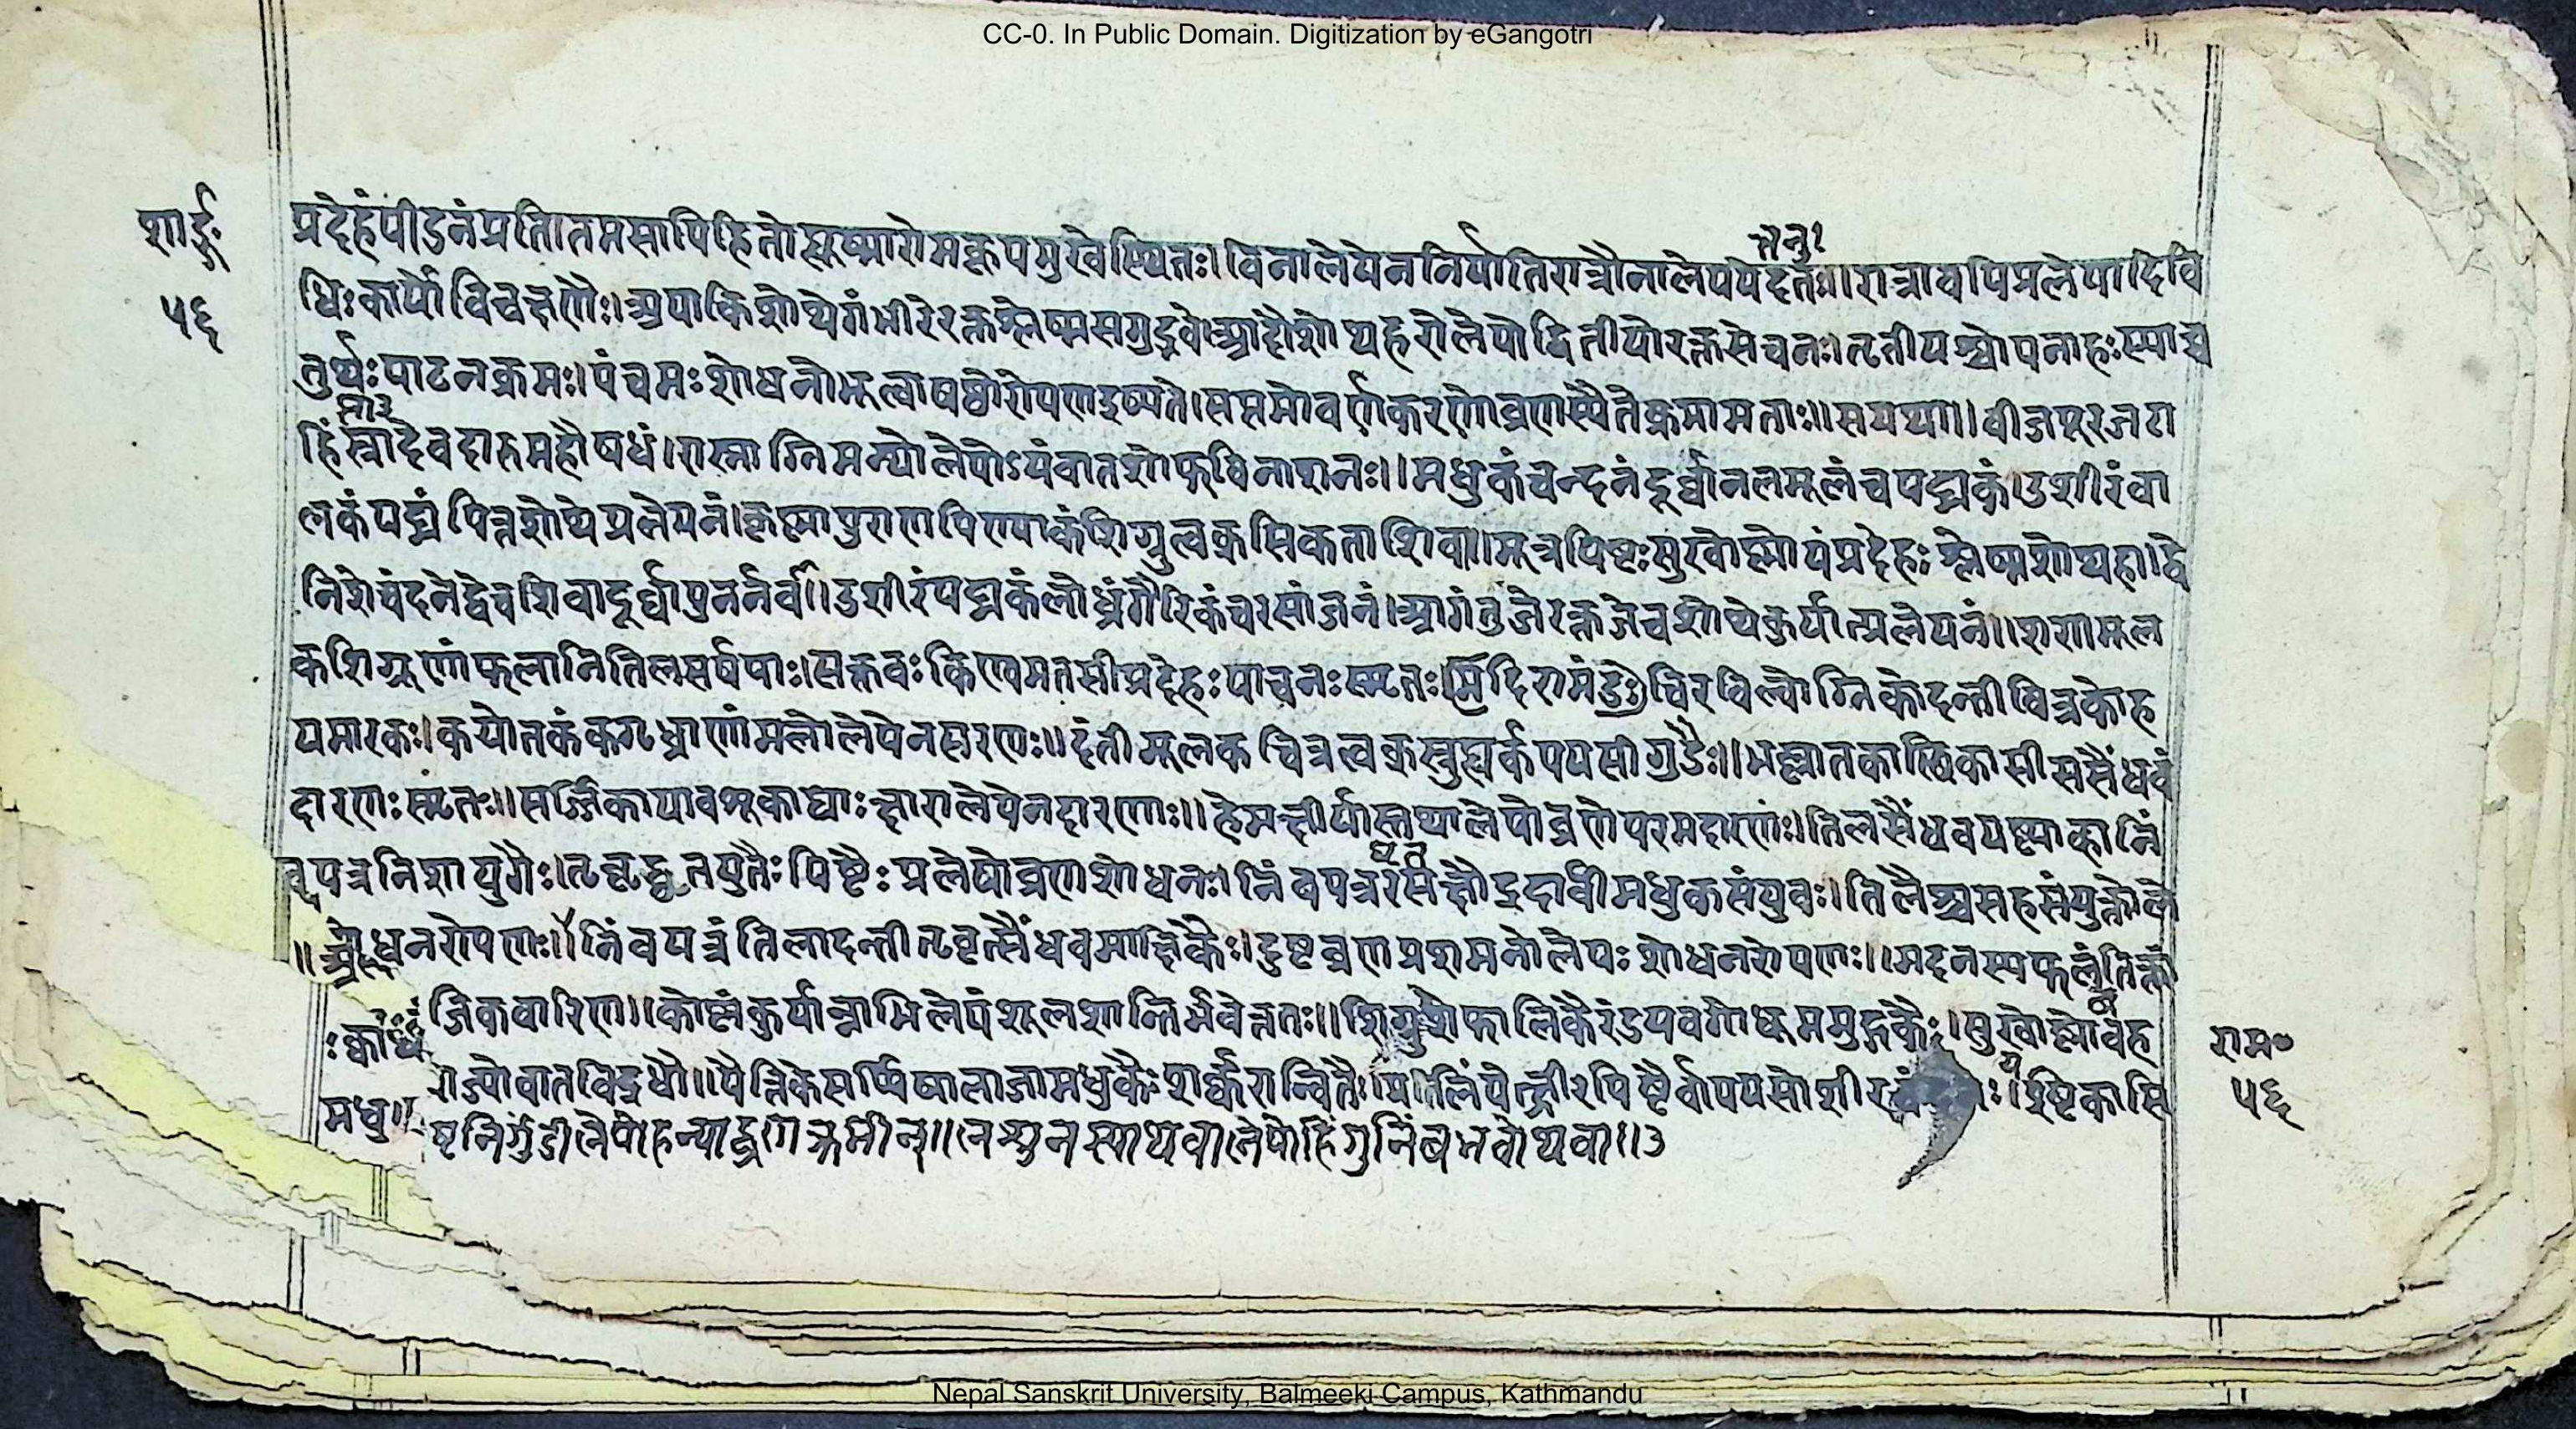 CC-0. In Public Domain. Digitization by eGangotri
शार्ङ्गः
५६
प्रदेहंपीडनंप्रति।तमसापिहितोह्यूष्मारोमकूपमुखेस्थितः।विनालेपेननिर्यातिरात्रौनालेपयेदतः॥रात्रावपिप्रलेपादिवि
तैनु१
धिःकार्योविचक्षणैः।अपाकिशोथेगंभीरेरक्तश्लेष्मसमुद्भवे।आदौशोथहरोलेपोद्वितीयोरक्तसेचनः।तृतीयश्चोपनाहःस्याच्च
तुर्थःपाटनक्रमः।पंचमःशोधनोभूत्वाषष्ठोरोपणइष्यते।सप्तमोवर्णकरणोव्रणस्यैतेक्रमामताः॥सयथा॥बीजपूरजटा
हिंस्रादेवदारुमहौषधं।रास्नाग्निमन्थोलेपोऽयंवातशोफविनाशनः॥मधुकंचन्दनंदूर्वानलमूलंचपद्मकं।उशीरंवा
लकंपद्मंपित्तशोथेप्रलेपनं।कृष्णापुराणपिण्याकंशिग्रुत्वक्सिकताशिवा॥मूत्रपिष्टःसुखोष्णोयंप्रदेहःश्लेष्मशोथहा।द्वे
निशेचंदनेद्वेचशिवादूर्वापुनर्नवा।उशीरंपद्मकंलोध्रंगैरिकंचरसांजनं।आगंतुजेरक्तजेचशोथेकुर्यात्प्रलेपनं॥शणमूल
कशिग्रूणांफलानितिलसर्षपाः।सक्तवःकिण्वमतसीप्रदेहःपाचनःस्मृतः।मदिरामंडु३चिरविल्वोग्निकोदन्तीचित्रकोह
यमारकः।कपोतकंकगृध्राणांमलोलेपेनदारणः॥दंतीमूलकचित्रत्वक्स्नुह्यर्कपयसीगुडैः॥भल्लातकास्थिकासीससैंधवं
दारणःस्मृतः॥सर्जिकायावशूकाद्याःक्षारालेपेनदारणाः॥हेमक्षीर्यास्तथालेपोव्रणेपरमदारणः।तिलसैंधवयष्ट्याह्वानिं
बपत्रनिशायुगैः।तृवृद्घृतयुतैःपिष्टैःप्रलेपोव्रणशोधनः।निंबपत्ररसक्षौद्रदार्वीमधुकसंयुवः।तिलैश्चसहसंयुक्तोले
शोधनरोपणः॥निंबपत्रंतिलादन्तीतृवृत्सैंधवमाक्षिकैः।दुष्टव्रणप्रशमनोलेपःशोधनरोपणः॥मदनस्यफलंतिक्तां
जिकवारिणा।कोष्णंकुर्यान्नाभिलेपंशूलशान्तिर्भवेत्ततः॥शिग्रुशेफालिकैरंडयवगोधूममुद्गकैः।सुखोष्णोवह
मधु॥
वातविद्रधौ॥पैत्तिकेसर्पिषालाजामधुकैःशर्करान्वितैः।प्रलिंपेत्क्षीरपिष्टैर्वापयसोशीर
ष्टनिर्गुंडीलेपोहन्याद्व्रणेक्रमीन्॥लशुनस्याथवालेपोहिंगुनिंबभवोथवा॥३
राम॰
५६
Nepal Sanskrit University, Balmeeki Campus, Kathmandu